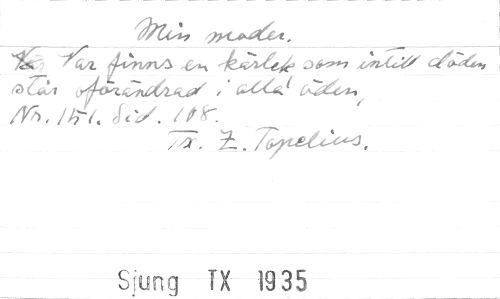 Min moder.
Var finns en kärlek som intill döden
står oförändrad i alla öden,
Nr. 151. Sid. 108.
Tx. Z. Topelius.
Sjung TX 1935